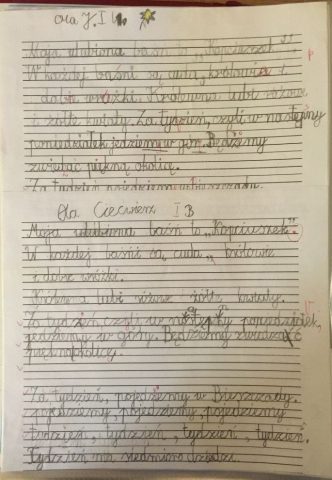 Ola J. I b.
Moja ulubiona baśń to „Kopciuszek".
W każdej baśni są cuda, królowie i
dobre wróżki. Królowna lubi różowe
i żółte kwiaty. Za tydzień, czyli w następny
poniedziałek jedziemy w góry. Będziemy
zwiedzać piękną okolicę.
Za tydzień pojedziemy w Bieszczady.
Ola Ciećwierz I B
Moja ulubiona baśń to „Kopciuszek".
W każdej baśni są „cuda„ królowie
i dobre wróżki.
Królewna lubi różowe żółte kwiaty.
Za tydzień czyli w następny poniedziałek,
jedziemy w góry. Będziemy zwiedzać
piękną okolicę.
Za tydzień, pojedziemy w Bieszczady.
pojedziemy, pojedziemy, pojedziemy
tydzień, tydzień, tydzień, tydzień.
Tydzień ma siedmiu